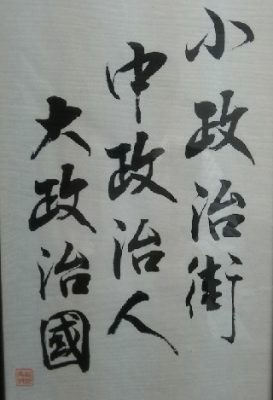 小政治街
中政治人
大政治國